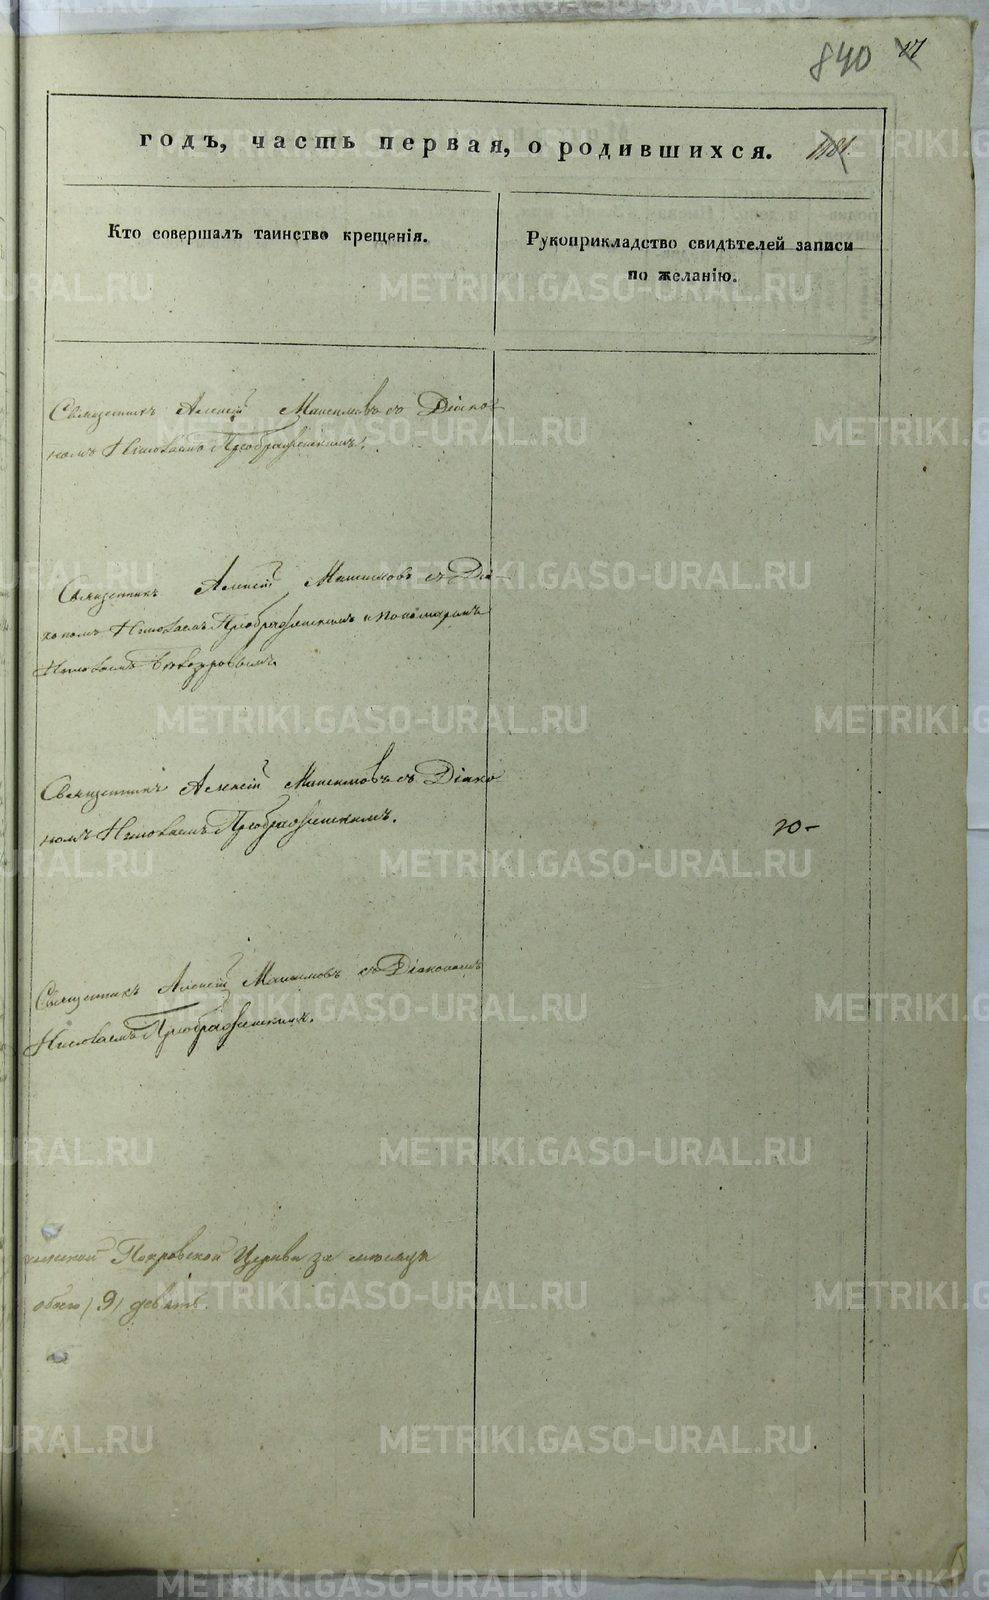 840 17
годъ, часть первая, о родившихся. 1181.
Кто совершалъ таинство крещенія.
Рукоприкладство свидѣтелей записи
по желанію.
Священникъ Алексій Максимовъ съ Діако-
номъ Николаемъ Преображенскимъ.
Священникъ Алексій Максимовъ съ Діа-
кономъ Николаемъ Преображенскимъ и Пономаремъ
Николаемъ
Священникъ Алексій Максимовъ съ Діако
номъ Николаемъ Преображенскимъ.
20-
Священникъ Алексій Максимовъ съ Діакономъ
Николаемъ Преображенскимъ.
Покровской Церкви за мѣсяцъ
обоего (9) девять.
METRIKI.GASO-URAL.RU